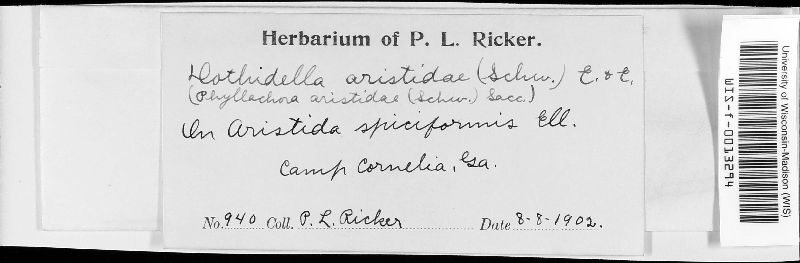 Herbarium of P. L. Ricker.
Dothidella aristidae (Schw.) E. & E.
(Phyllachora aristidae (Schw.) Sacc.)
On Aristida spiciformis Ell.
Camp Cornelia, Ga.
No. 940 Coll. P. L. Ricker Date 8-8-1902.
University of Wisconsin-Madison (WIS)
WIS-f-0013294